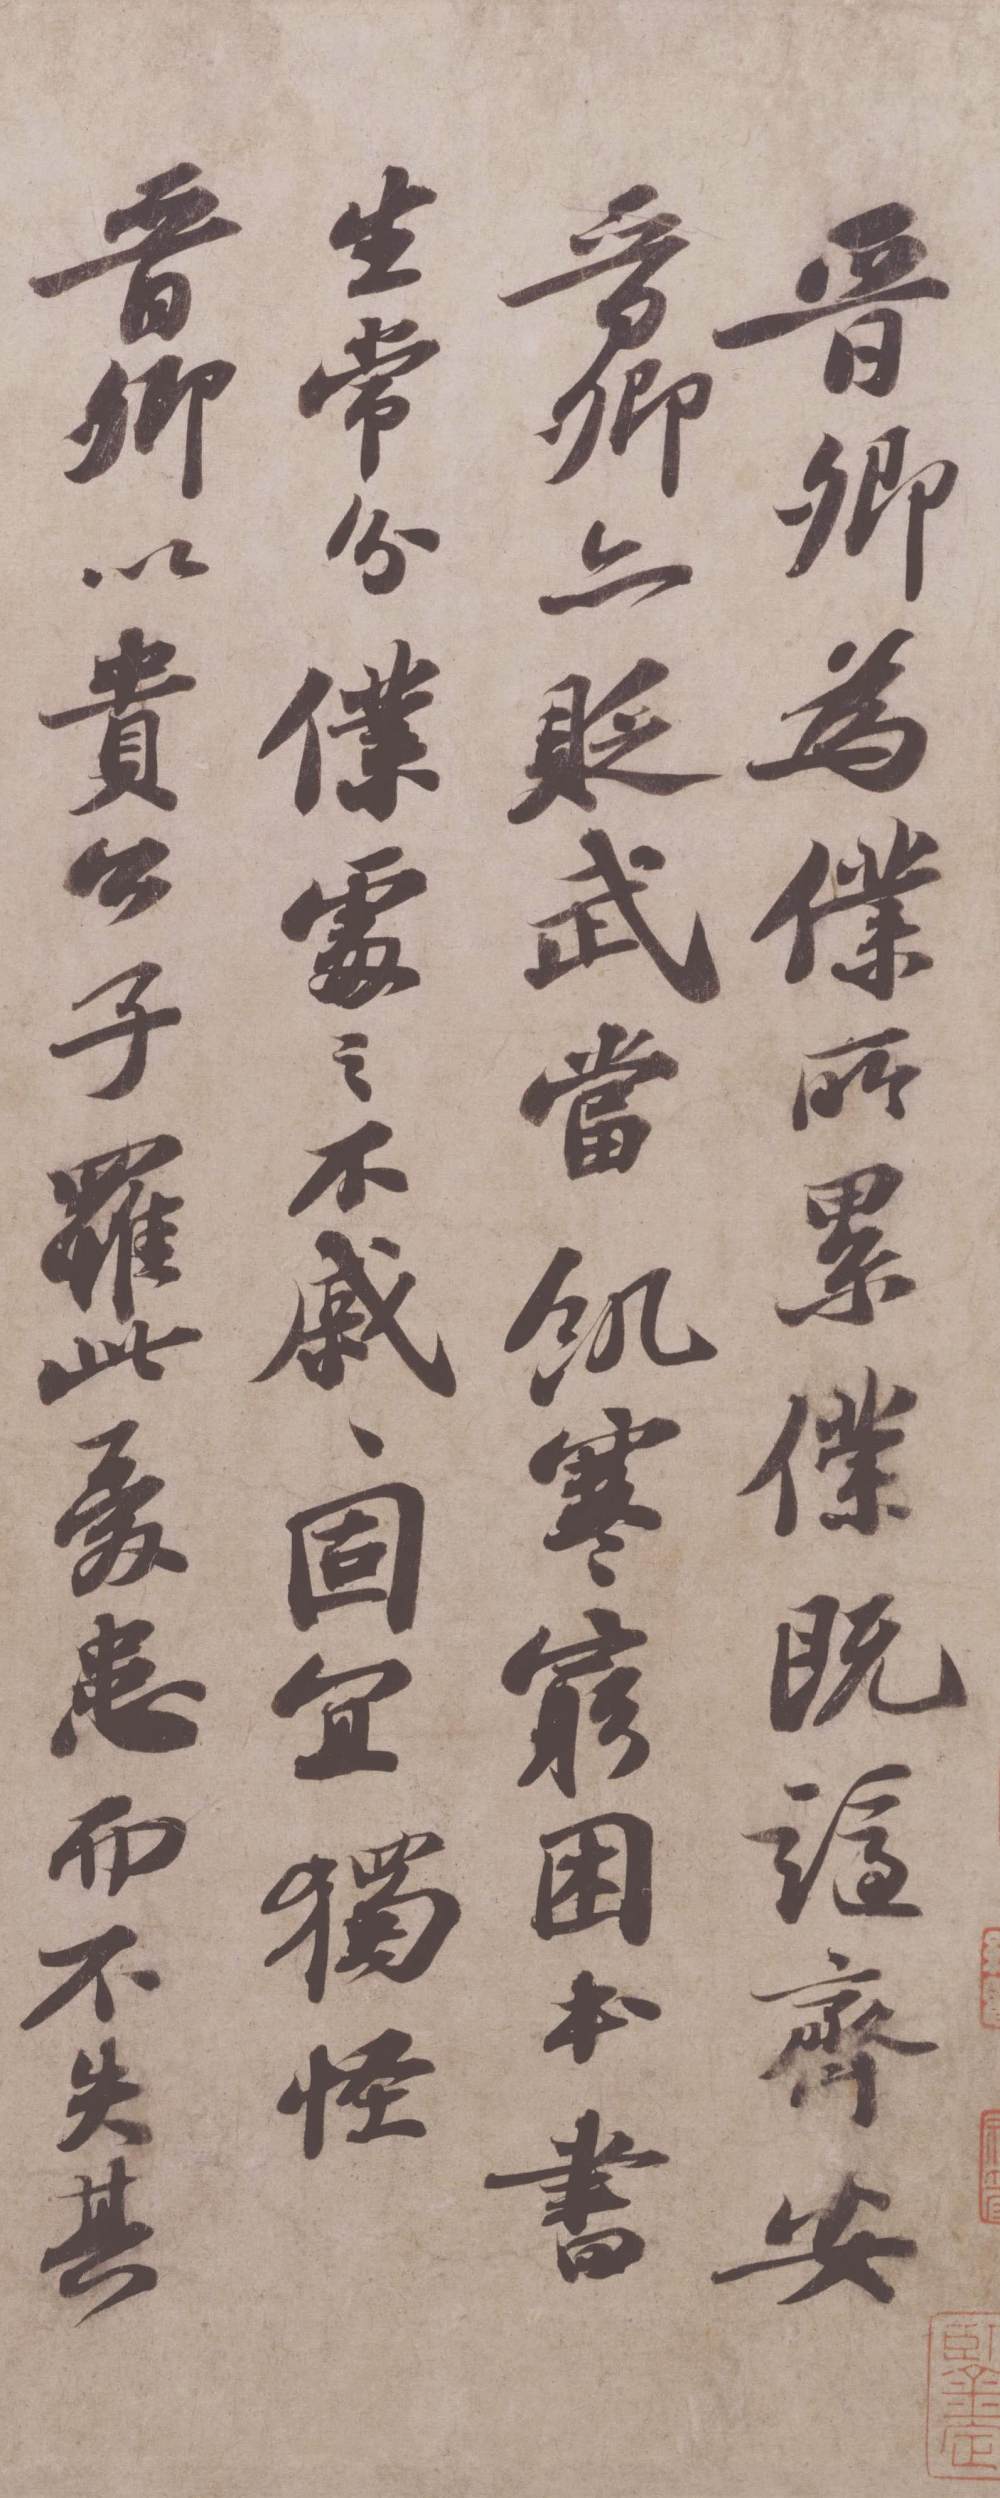 晋卿為僕所累僕既謫齊安
晋卿亦貶武當飢寒窮困本書
生常分僕處之不戚戚固宜獨怪
晋卿以貴公子罹此憂患而不失其